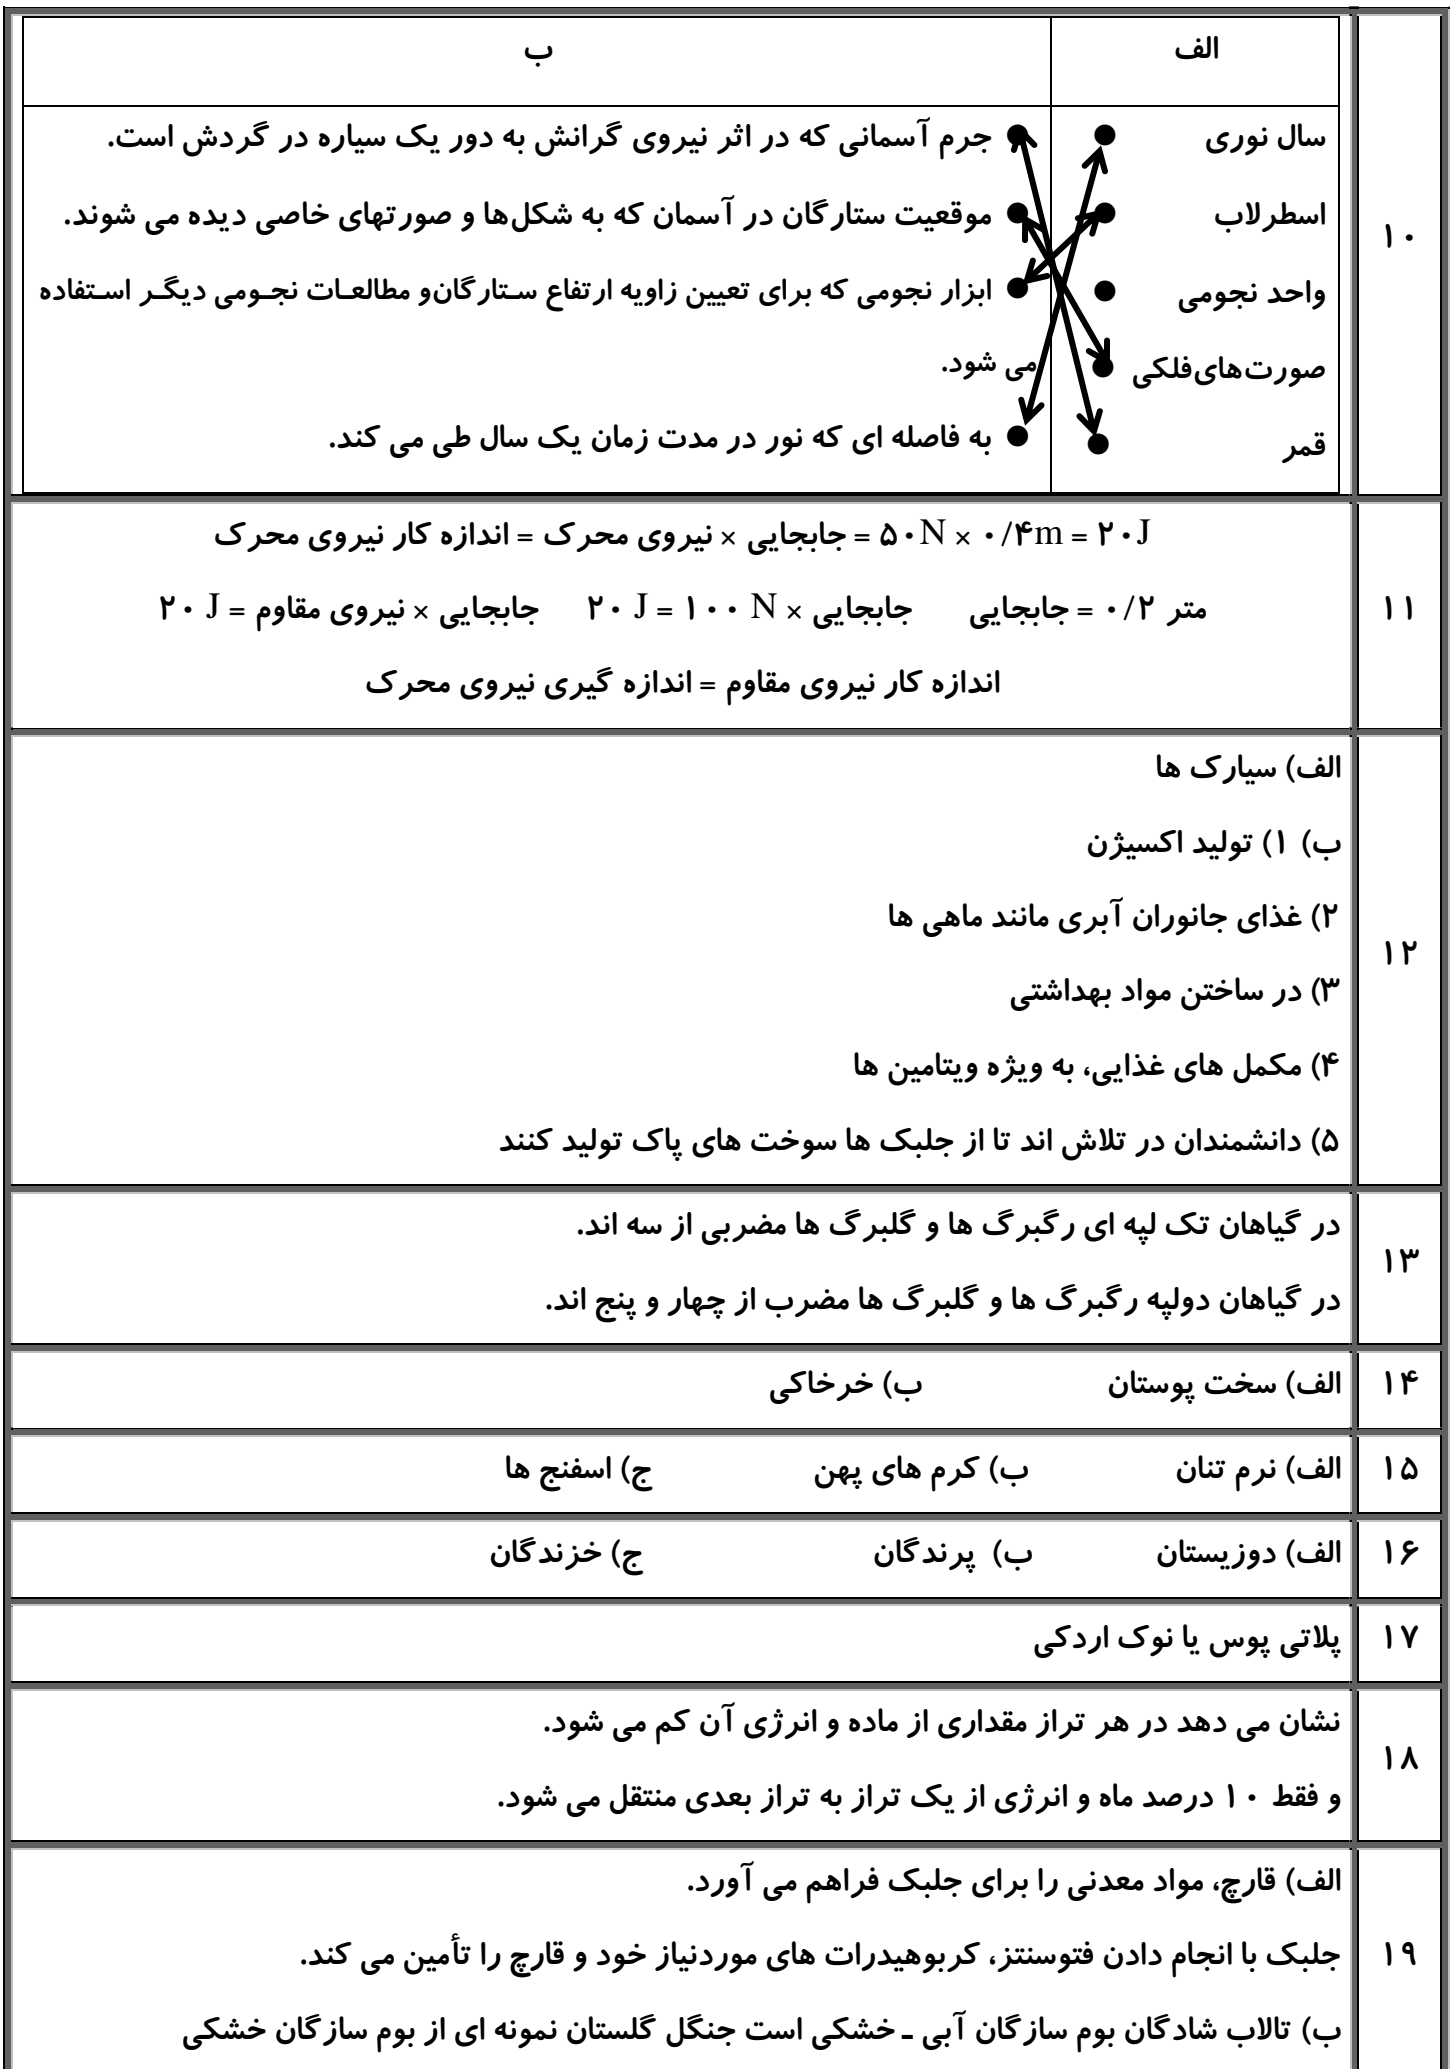 الف
ب
سال نوری
جرم آسمانی که در اثر نیروی گرانش به دور یک سیاره در گردش است.
اسطرلاب
موقعیت ستارگان در آسمان که به شکل‌ها و صورتهای خاصی دیده می شوند.
واحد نجومی
ابزار نجومی که برای تعیین زاویه ارتفاع ستارگان‌و مطالعات نجومی دیگر استفاده
صورت‌های‌فلکی
می شود.
قمر
به فاصله ای که نور در مدت زمان یک سال طی می کند.
۱۰
اندازه کار نیروی محرک = نیروی محرک × جابجایی = ۵۰N × ۰/۴m = ۲۰J
۲۰ J = نیروی مقاوم × جابجایی ۲۰ J = ۱۰۰ N × جابجایی جابجایی = ۰/۲ متر
اندازه کار نیروی مقاوم = اندازه گیری نیروی محرک
۱۱
الف) سیارک ها
ب) ۱) تولید اکسیژن
۲) غذای جانوران آبری مانند ماهی ها
۳) در ساختن مواد بهداشتی
۴) مکمل های غذایی، به ویژه ویتامین ها
۵) دانشمندان در تلاش اند تا از جلبک ها سوخت های پاک تولید کنند
۱۲
در گیاهان تک لپه ای رگبرگ ها و گلبرگ ها مضربی از سه اند.
در گیاهان دولپه رگبرگ ها و گلبرگ ها مضرب از چهار و پنج اند.
۱۳
۱۴ الف) سخت پوستان ب) خرخاکی
۱۵ الف) نرم تنان ب) کرم های پهن ج) اسفنج ها
۱۶ الف) دوزیستان ب) پرندگان ج) خزندگان
۱۷ پلاتی پوس یا نوک اردکی
نشان می دهد در هر تراز مقداری از ماده و انرژی آن کم می شود.
و فقط ۱۰ درصد ماه و انرژی از یک تراز به تراز بعدی منتقل می شود.
۱۸
الف) قارچ، مواد معدنی را برای جلبک فراهم می آورد.
جلبک با انجام دادن فتوسنتز، کربوهیدرات های موردنیاز خود و قارچ را تأمین می کند.
۱۹
ب) تالاب شادگان بوم سازگان آبی ـ خشکی است جنگل گلستان نمونه ای از بوم سازگان خشکی